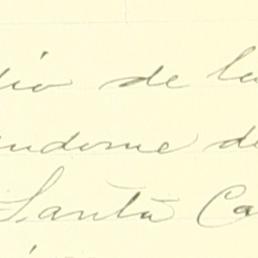 dio de la
endome de
Santa Ca